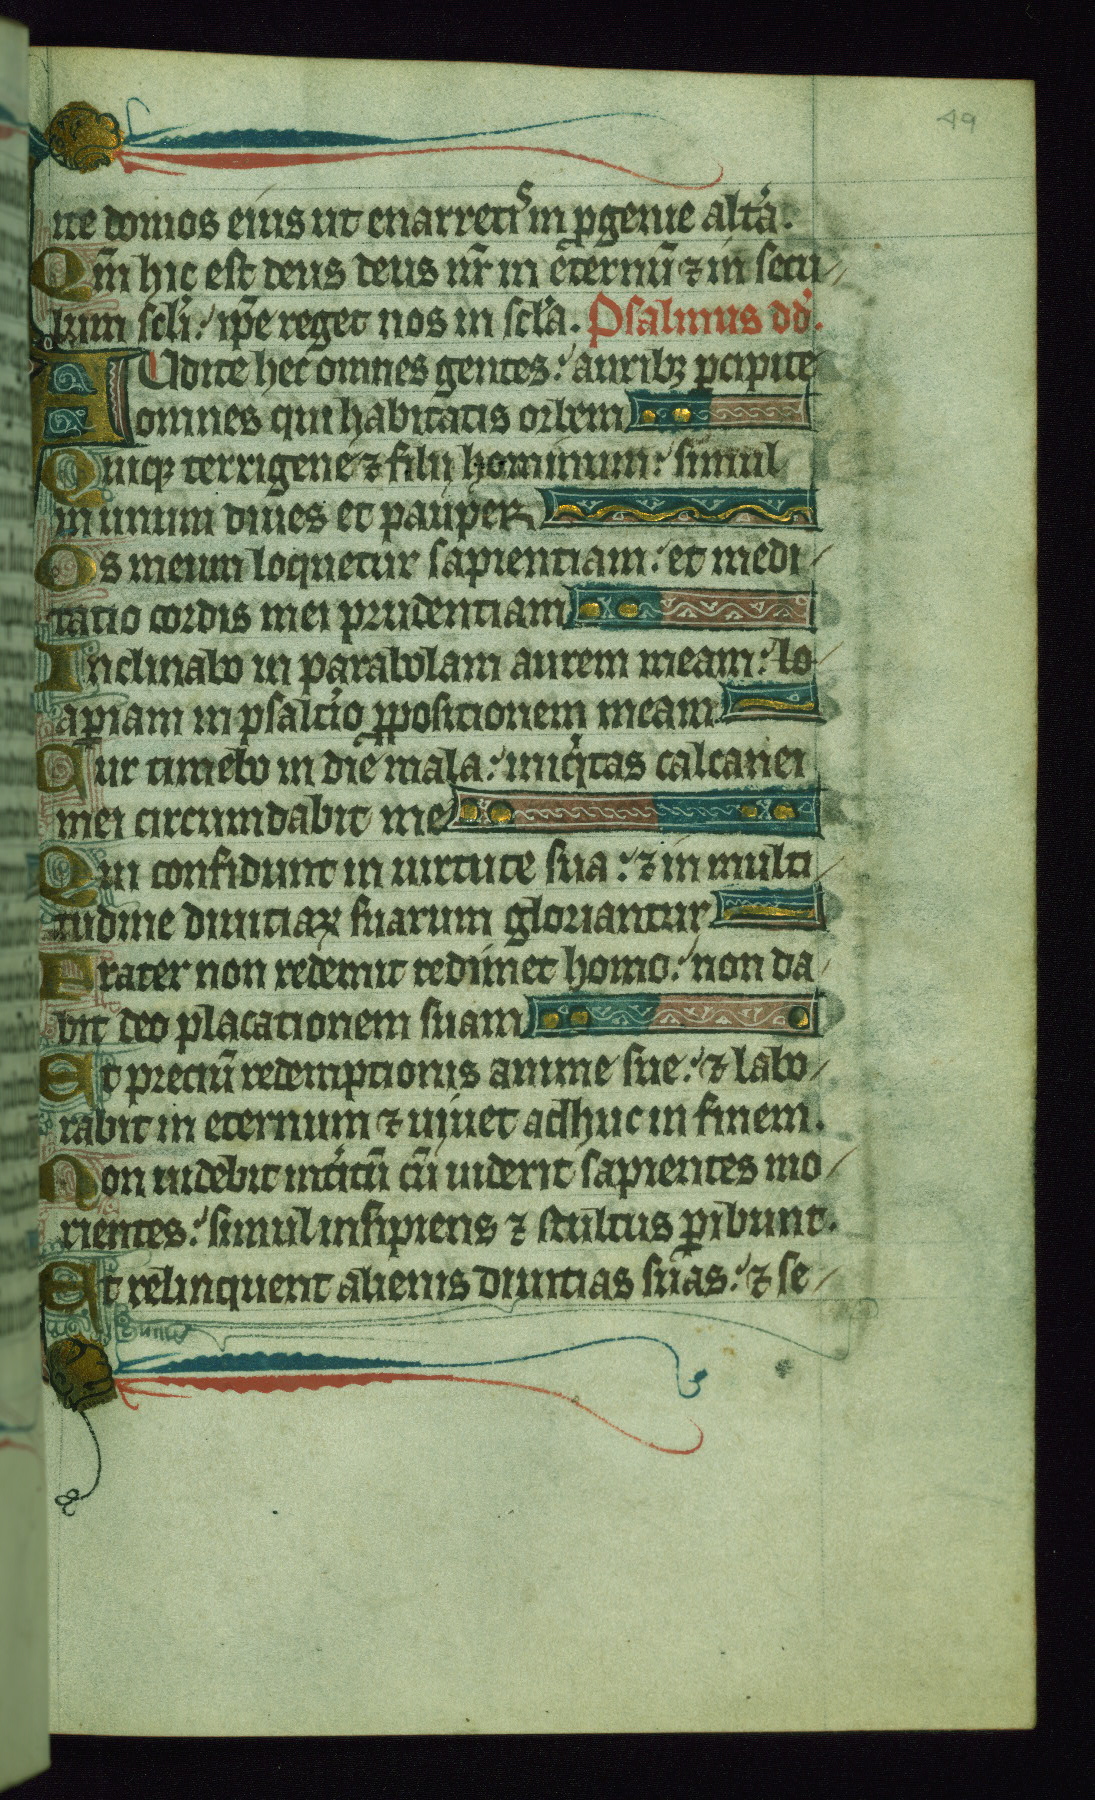 49
ite domos eius ut enarretis in pgenie altа̾.
Qm̄ hic est deus deus nr̄ in eternū ⁊ in secu
lum scl̄i: ip̄e reget nos in scl̄a. Psalmus dd̄.
AUdite hec omnes gentes: auribꝫ ꝑcipite
omnes qui habitatis orbem
Quiqꝫ terrigene ⁊ filij hominum: simul
in unum diues et pauper
Os meum loquetur sapientiam: et medi
tatio cordis mei prudentiam
Inclinabo in parabolam aurem meam:
apiam in psaltio ꝓpositionem meam
Cur timebo in die mala: iniqitas calcanei
mei circumdabit me
Qui confidunt in uirtute sua: ⁊ in multi
tudine diuitiaꝝ suarum gloriantur
Frater non redemit redimet homo: non da
bit deo placationem suam
Et preciū redemptionis anime sue: ⁊ labo
rabit in eternum ⁊ uiuet adhuc in finem.
Non uidebit intitū cū uiderit sapientes mo
rientes: simul insipiens ⁊ stultus ꝑibunt.
Et relinquent alienis diuitias suas: ⁊ se